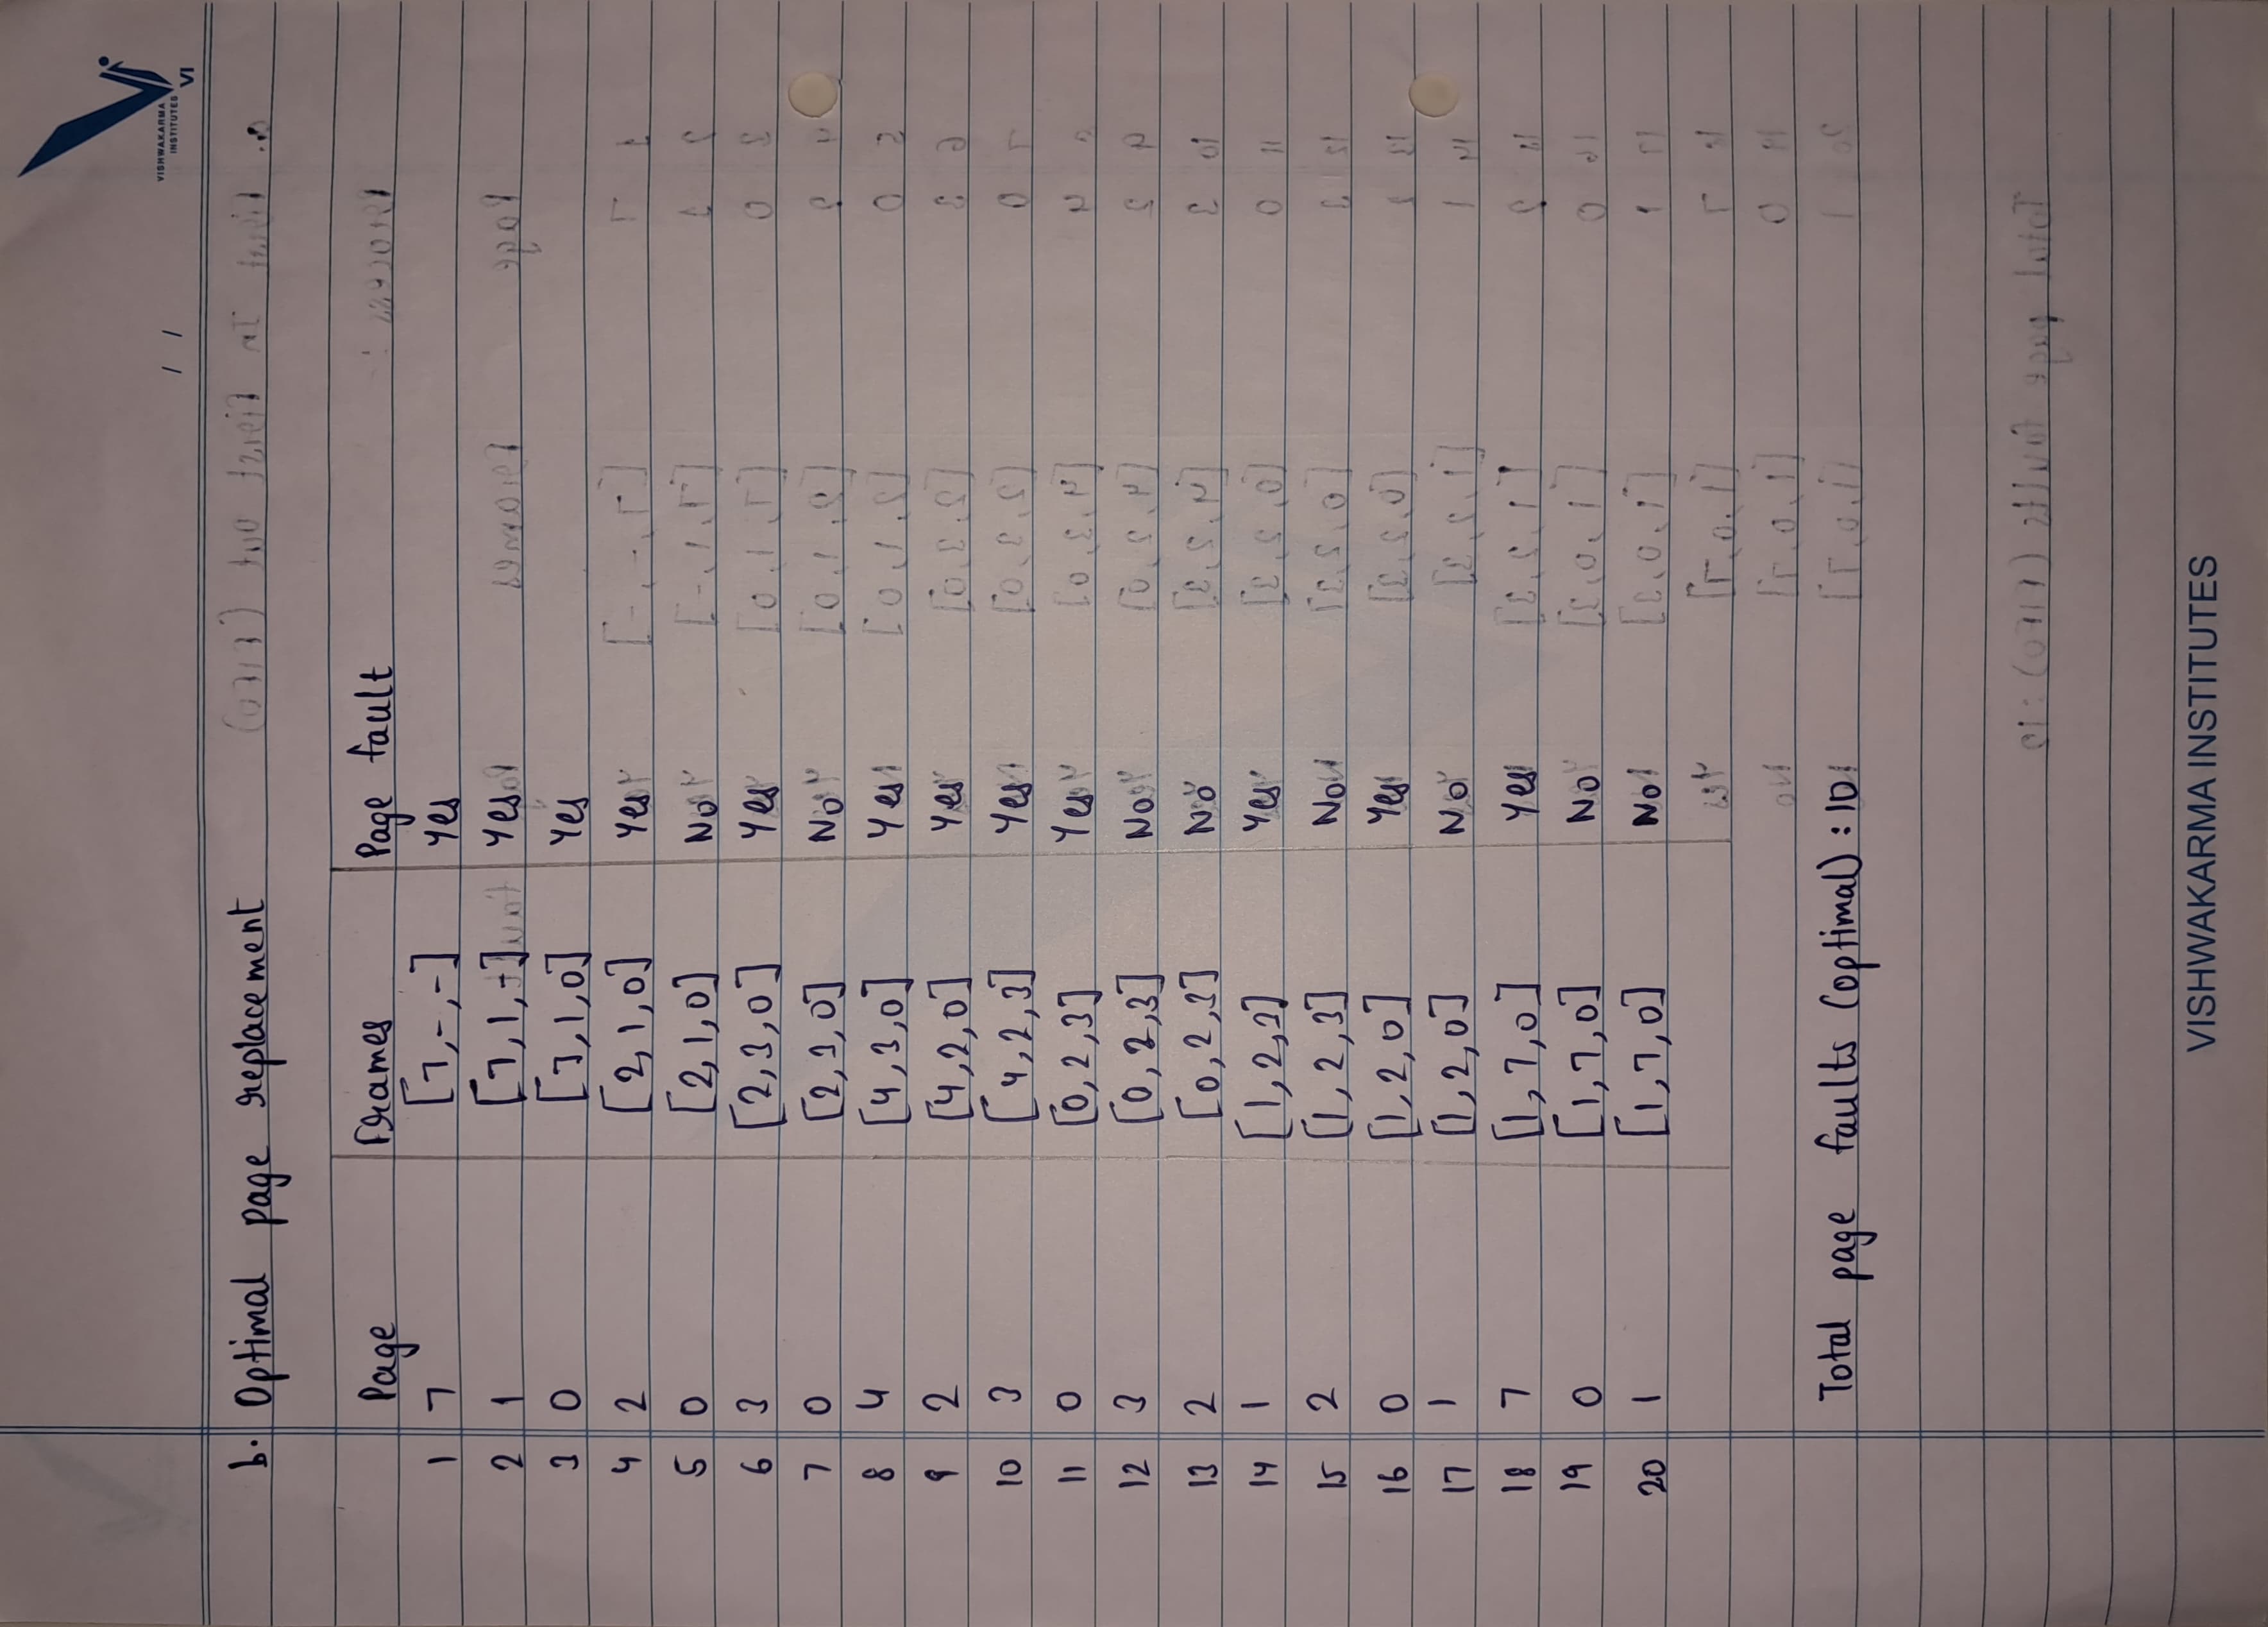 VISHWAKARMA
INSTITUTES
VI
/ /
b. Optimal page replacement
Page Frames Page fault
1 7 [7,-,-] Yes
2 1 [7,1,-] Yes
3 0 [7,1,0] Yes
4 2 [2,1,0] Yes
5 0 [2,1,0] No
6 3 [2,3,0] Yes
7 0 [2,3,0] No
8 4 [4,3,0] Yes
9 2 [4,2,0] Yes
10 3 [4,2,3] Yes
11 0 [0,2,3] Yes
12 3 [0,2,3] No
13 2 [0,2,3] No
14 1 [1,2,3] Yes
15 2 [1,2,3] No
16 0 [1,2,0] Yes
17 1 [1,2,0] No
18 7 [1,7,0] Yes
19 0 [1,7,0] No
20 1 [1,7,0] No
Total page faults (optimal) : 10
VISHWAKARMA INSTITUTES